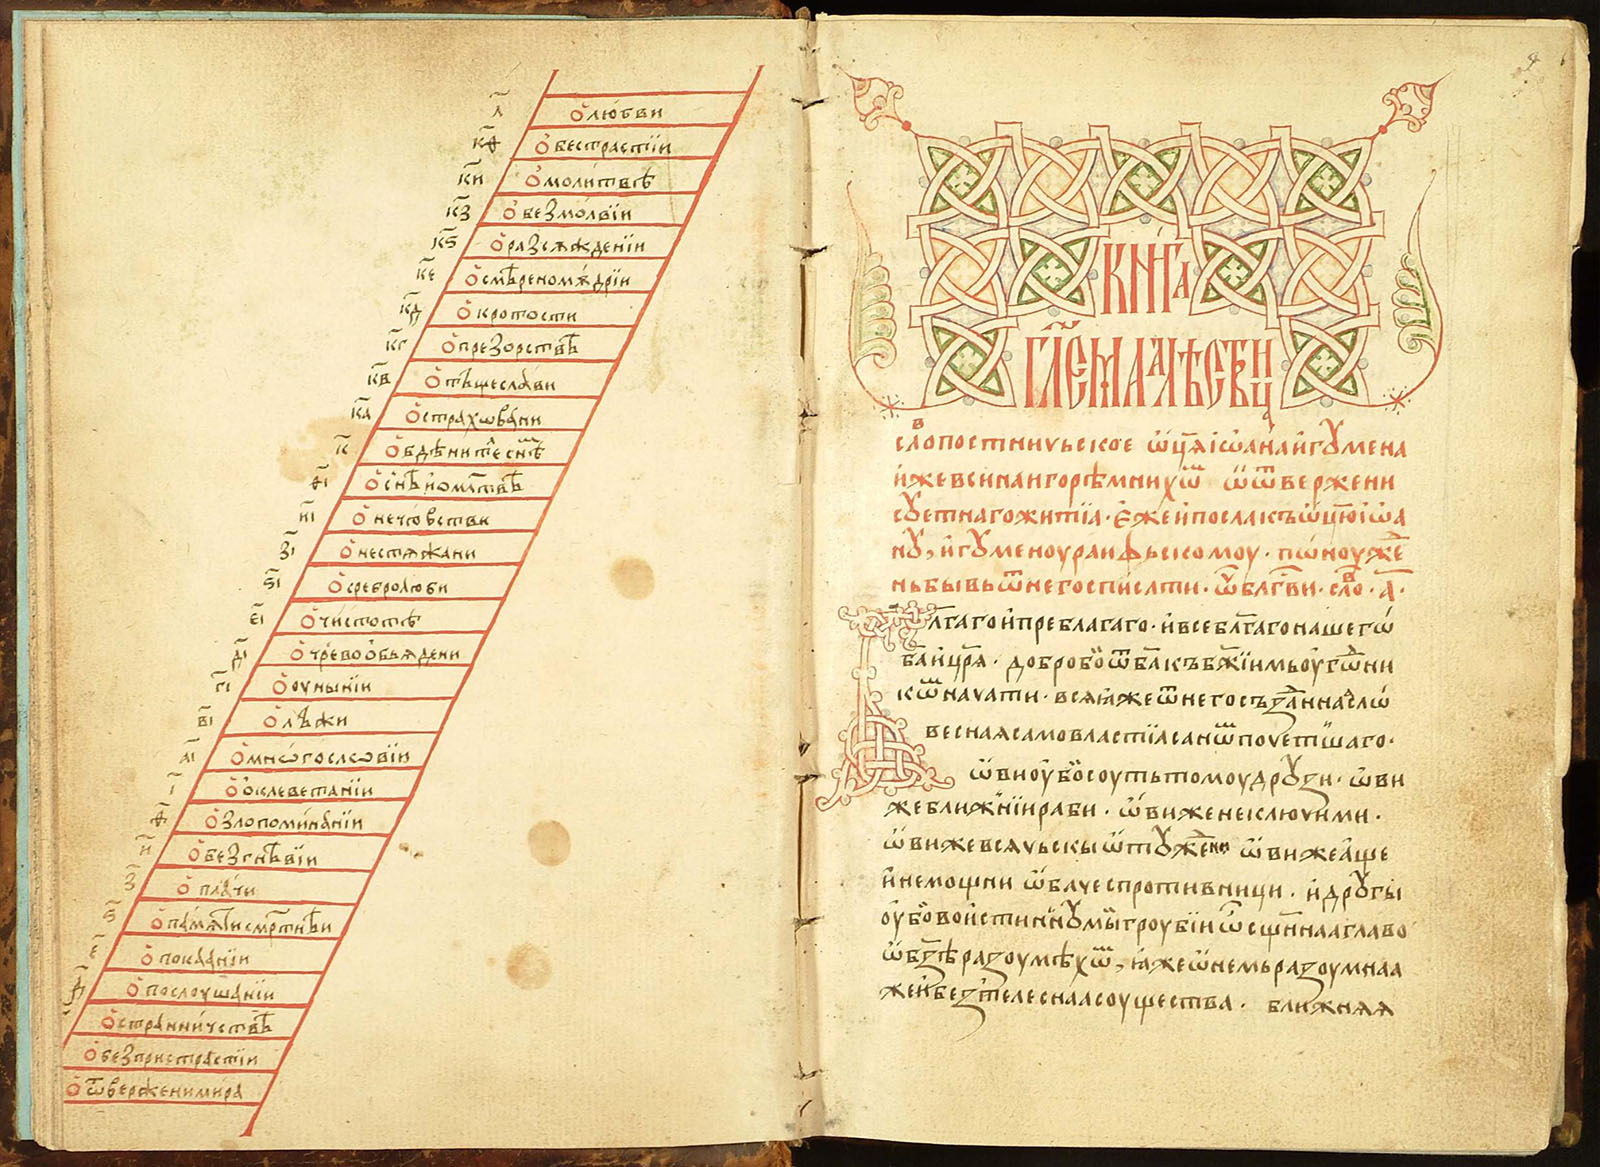 л҃ О любви
к҃ѳ О бестрастїи
к҃и О молитвѣ
к҃з О безмолвїи
к҃ѕ О разсѫждении
к҃е О смѣреномѫдрїи
к҃д О кротости
к҃г О презорствѣ
к҃в О тъщеслави
к҃а О страхѡвани
к҃ О бдѣни тѣⷧ҇снѣⷨ
ѳ҃і О снѣ и о млт҃вѣ
и҃і О нечювстви
з҃і О нестѧжани
ѕ҃і О сребролюби
е҃і О чистотѣ
д҃і О чрево обьꙗдени
г҃і О оунынїи
в҃і О лъжи
а҃і О мнѡгословїи
і҃ О оклеветанїи
ѳ҃ О злопоминанїи
и҃ О безгнѣвїи
з҃ О плачи
ѕ҃ О памѧти смр҃тнѣи
е҃ О покаꙗнїи
д҃ О послоушанїи
О странничьствѣ
О безпристрастїи
О ѿвержени мира
КНИГА
ГЛ҃ЕМАꙖ ЛѢСТВИЦ
сло постничьское ѡц҃ꙗ іѡана игꙋмена
иже в синаи горѣ мнихѡⷨ ѿвержени
сꙋетнаго житїа · еже и посла къ ѡц҃ю іѡа
нꙋ, игꙋменоу раифьскомоу · понꙋжеⷩ
нь бывь ѿ него списати · блгⷭ҇ви · слоⷡ · а҃ ·
Бл҃гаго и преблагаго · и всебл҃гаго нашего
ба҃ и цр҃ꙗ · добро бо ѿ ба҃ къ бж҃їимь оугѡⷣни
кѡⷨ начати · всѧ иже ѿ него създанна сло
веснаꙗ самовластїа саноⷨ почетшаго ·
ѡви оубо соуть томоу дрꙋзи · ѡви
же ближнїи раби · ѡви же неключими ·
ѡви же всѧчьскы ѿтꙋжени ѡви же аще
и немощни ѡбаче спротивници · и дрꙋгы
оубо воистиннꙋ мы гроубїи ѡсщ҃ннаа главо
ѡ бз҃ѣ разоумѣхѡⷨ, ꙗже ѡ немь разоумнаа
же и безтелеснаа соущества · ближнѧѧ